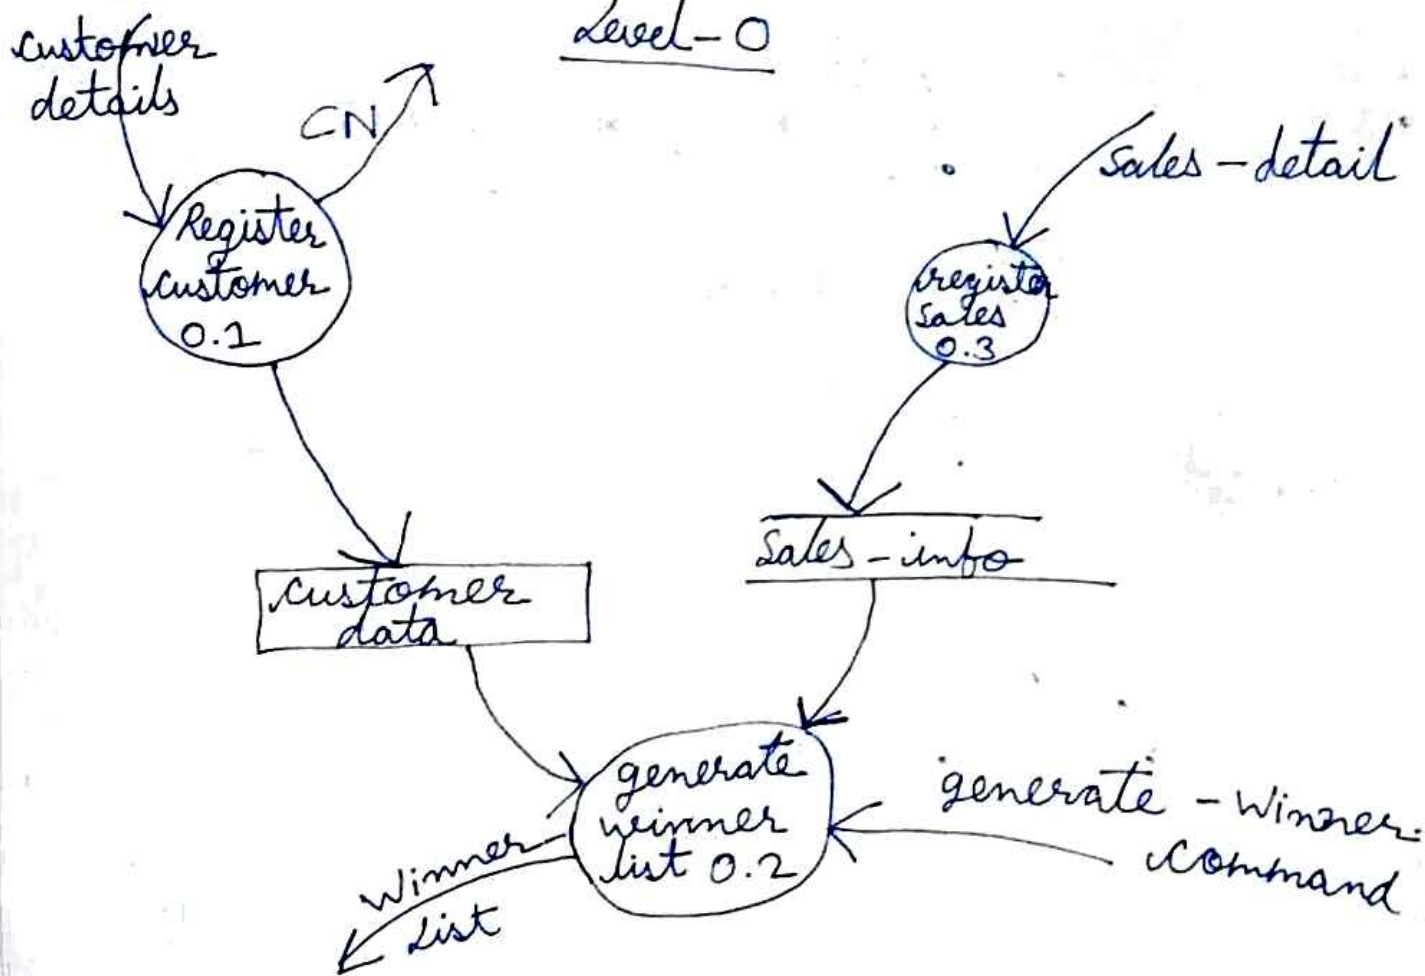 Level-0
customer
details
CN
sales-detail
Register
customer
0.1
register
sales
0.3
sales-info
customer
data
generate
winner
list 0.2
generate-Winner
command
Winner
List